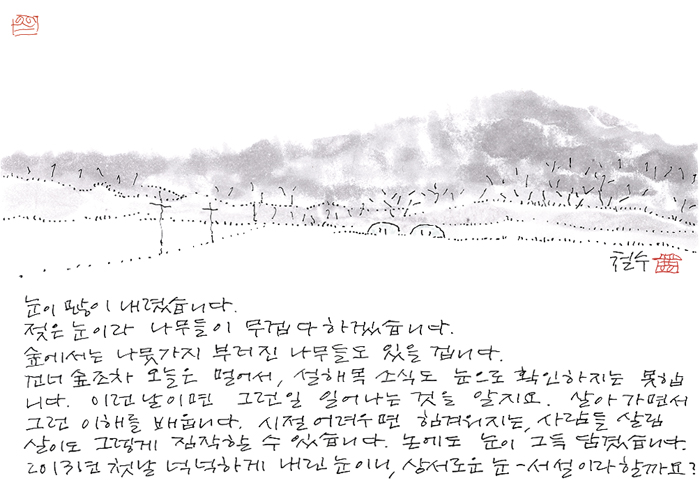 철수
눈이 많이 내렸습니다.
젖은 눈이라 나무들이 무겁다 하겠습니다.
숲에서는 나뭇가지 부러진 나무들도 있을 겁니다.
건너 숲조차 오늘은 멀어서, 설해목 소식도 눈으로 확인하지는 못합
니다. 이런 날이면 그런일 일어나는 것을 알지요. 살아가면서
그런 이해를 배웁니다. 시절 어려우면 힘겨워지는, 사람들 살림
살이도 그렇게 짐작할 수 있습니다. 논에도 눈이 그득 담겼습니다.
2013년 첫날 넉넉하게 내린 눈이니, 상서로운 눈-서설이라 할까요?